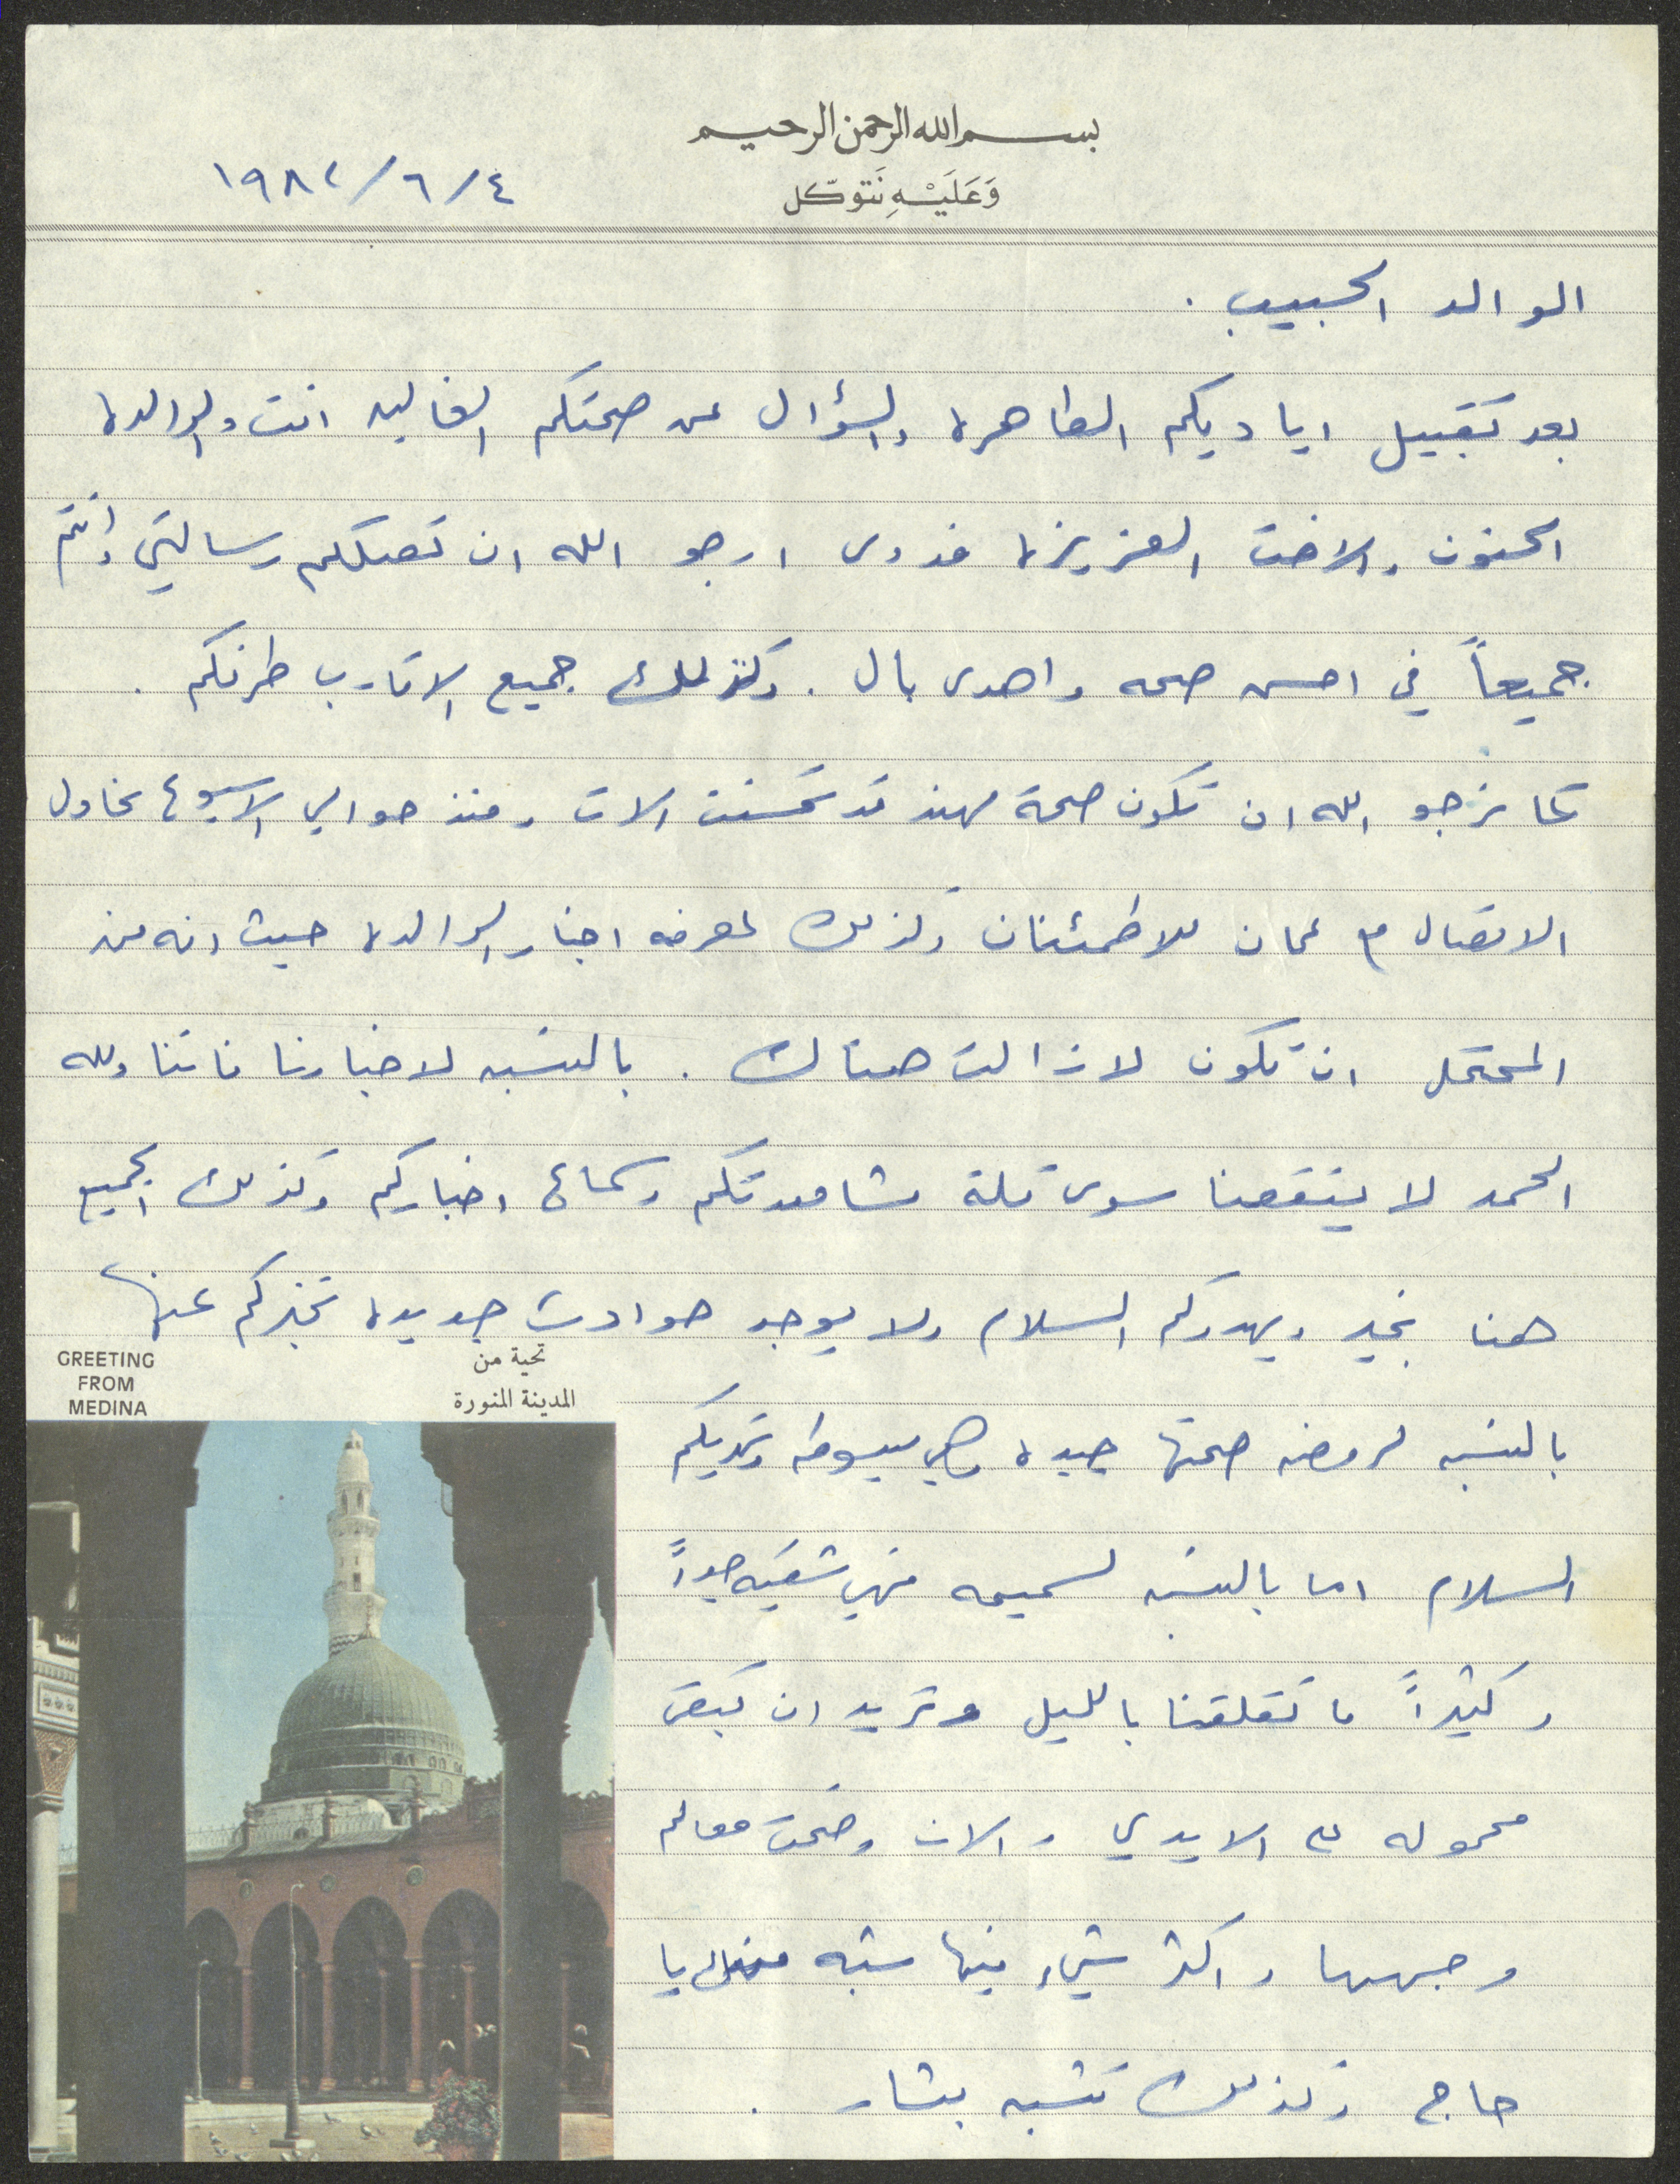 بسم الله الرحمن الرحيم
وَعَلَيْهِ نَتوكّل
١٩٨٢/٦/٤
الوالد الحبيب .
بعد تقبيل اياديكم الطاهره والسؤال عن صحتكم الغاليه انت والوالده
الحنون والاخت العزيزه فدوى ارجو الله ان تصلكم رسالتي وانتم
جميعاً في احسن صحه واهدى بال . وكذلك جميع الاقارب طرفكم .
كما نرجو الله ان تكون صحة مهند قد تحسنت الان ومنذ حوالي الاسبوع نحاول
الاتصال مع عمان للاطمئنان وكذلك لمعرفه اخبار الوالده حيث انه من
المحتمل ان تكون لازالت هناك . بالنسبه لاخبارنا فاننا ولله
الحمد لا ينقصنا سوى قلة مشاهدتكم وسماع اخباركم وكذلك الجميع
هنا بخير ويهدوكم السلام ولا يوجد حوادث جديده نخبركم عنها
GREETING
FROM
MEDINA
تحية من
المدينة المنورة
بالنسبه لروضه صحتها جيده وهي مبسوطه وتهديكم
السلام اما بالنسبه لسميحه فهي شقيه جداً
وكثيراً ما تقلقنا بالليل وتريد ان تبقى
محموله على الايدي والان وضحت معالم
وجهها واكثر شيء فيها شبه منك يا
حاج وكذلك تشبه بشار .